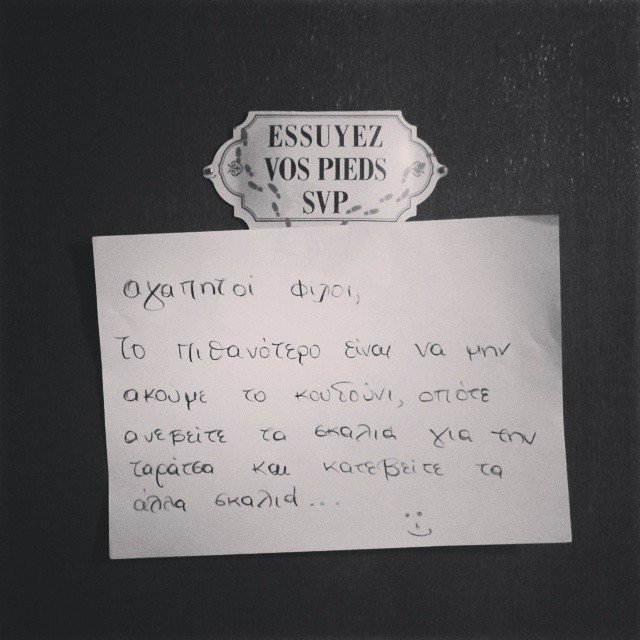 ESSUYEZ
VOS PIEDS
SVP
αγαπητοί φιλοι,
το πιθανότερο είναι να μην
ακουμε το κουδούνι, οπότε
ανεβείτε τα σκαλιά για την
ταράτσα και κατεβείτε τα
άλλα σκαλιά...